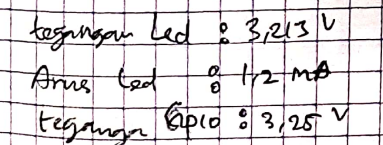 tegangan Led : 3,213 V
Arus Led : 1,2 mA
tegangan Gpio : 3,25 V